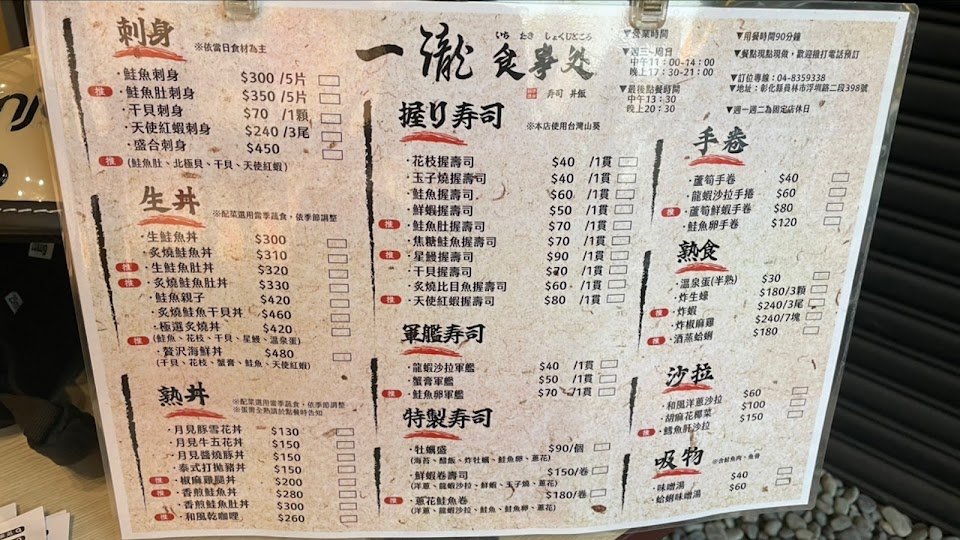 刺身 ※依當日食材為主
・鮭魚刺身 $300 /5片
推 ・鮭魚肚刺身 $350 /5片
・干貝刺身 $70 /1顆
・天使紅蝦刺身 $240 /3尾
・盛合刺身 $450
推 (鮭魚肚、北極貝、干貝、天使紅蝦)
生丼 ※配菜選用當季蔬食，依季節調整
・生鮭魚丼 $300
・炙燒鮭魚丼 $310
推 ・生鮭魚肚丼 $320
推 ・炙燒鮭魚肚丼 $330
・鮭魚親子 $420
・炙燒鮭魚干貝丼 $460
・極選炙燒丼 $420
推 (鮭魚、花枝、干貝、星鰻、溫泉蛋)
・贅沢海鮮丼 $480
(干貝、花枝、蟹膏、鮭魚、天使紅蝦)
熟丼 ※配菜選用當季蔬食，依季節調整
※蛋需全熟請於點餐時告知
・月見豚雪花丼 $130
・月見牛五花丼 $150
・月見醬燒豚丼 $150
・泰式打拋豬丼 $150
推 ・椒麻雞腿丼 $200
推 ・香煎鮭魚丼 $280
・香煎鮭魚肚丼 $300
推 ・和風乾咖哩 $260
いち たき しょくじどころ
一瀧 食事処
寿司 丼飯
握り寿司 ※本店使用台灣山葵
・花枝握壽司 $40 /1貫
・玉子燒握壽司 $40 /1貫
・鮭魚握壽司 $60 /1貫
・鮮蝦握壽司 $50 /1貫
推 ・鮭魚肚握壽司 $70 /1貫
・焦糖鮭魚握壽司 $70 /1貫
推 ・星鰻握壽司 $90 /1貫
・干貝握壽司 $70 /1貫
・炙燒比目魚握壽司 $60 /1貫
推 ・天使紅蝦握壽司 $80 /1貫
軍艦寿司
・龍蝦沙拉軍艦 $40 /1貫
・蟹膏軍艦 $50 /1貫
推 ・鮭魚卵軍艦 $70 /1貫
特製寿司
・牡蠣盛 $90/個
(海苔、醋飯、炸牡蠣、鮭魚卵、蔥花)
・鮮蝦卷壽司 $150/卷
(洋蔥、龍蝦沙拉、鮮蝦、玉子燒、蔥花)
推 ・蔥花鮭魚卷 $180/卷
(洋蔥、龍蝦沙拉、鮭魚、鮭魚卵、蔥花)
▼營業時間
▼週三~週日
中午11：00-14：00
晚上17：30-21：00
▼最後點餐時間
中午13：30
晚上20：30
▼用餐時間90分鐘
▼餐點現點現做，歡迎撥打電話預訂
▼訂位專線：04-8359338
▼地址：彰化縣員林市浮圳路二段398號
▼週一週二為固定店休日
手卷
・蘆筍手卷 $40
・龍蝦沙拉手捲 $60
推 ・蘆筍鮮蝦手卷 $80
・鮭魚卵手卷 $120
熟食
・溫泉蛋(半熟) $30
・炸生蠔 $180/3顆
推 ・炸蝦 $240/3尾
・炸椒麻雞 $240/7塊
推 ・酒蒸蛤蜊 $180
沙拉
・和風洋蔥沙拉 $60
・胡麻花椰菜 $100
推 ・鱈魚肝沙拉 $150
吸物 ※含鮭魚肉、魚骨
・味噌湯 $40
・蛤蜊味噌湯 $60